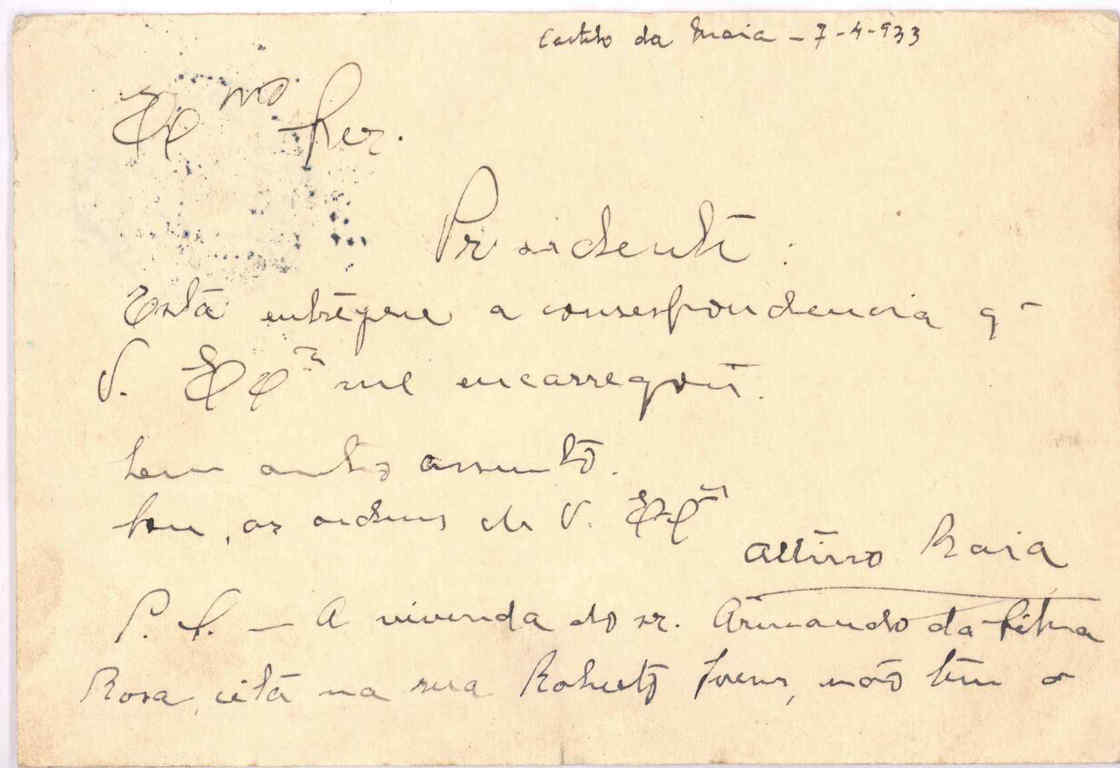 Castelo da Maia - 7-4-933
Exmo Snr.
Presidente:
Está entregue a correspondencia q
V. Exª me encarregou.
Sem outro assunto.
Sou, as ordens de V. Exª
Altino Maia
P. S. - A vivenda do sr. Armando da Silva
Rosa, está na rua Roberto Ivens, não tem o